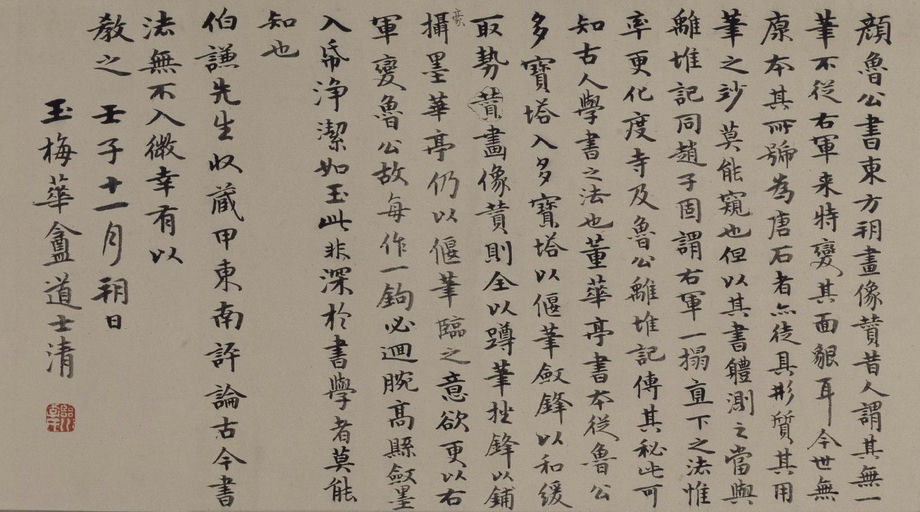 顏魯公書東方朔畫像贊昔人謂其無一
筆不從右軍来特變其面貌耳今世無
原本其所號為唐石者亦徒具形質其用
筆之妙莫能窺也但以其書體測之當與
離堆記同趙子固謂右軍一搨直下之法惟
率更化度寺及魯公離堆記傳其秘此可
知古人學書之法也董華亭書本從魯公
多寶塔入多寶塔以偃筆斂鋒以和緩
取勢贊畫像贊則全以蹲筆挫鋒以鋪
豪攝墨華亭仍以偃筆臨之意欲更以右
軍變魯公故每作一鉤必迴腕高縣斂墨
入帋淨潔如玉此非深於書學者莫能
知也
伯謙先生收藏甲東南評論古今書
法無不入微幸有以
教之 壬子十一月朔日
玉梅華盦道士清